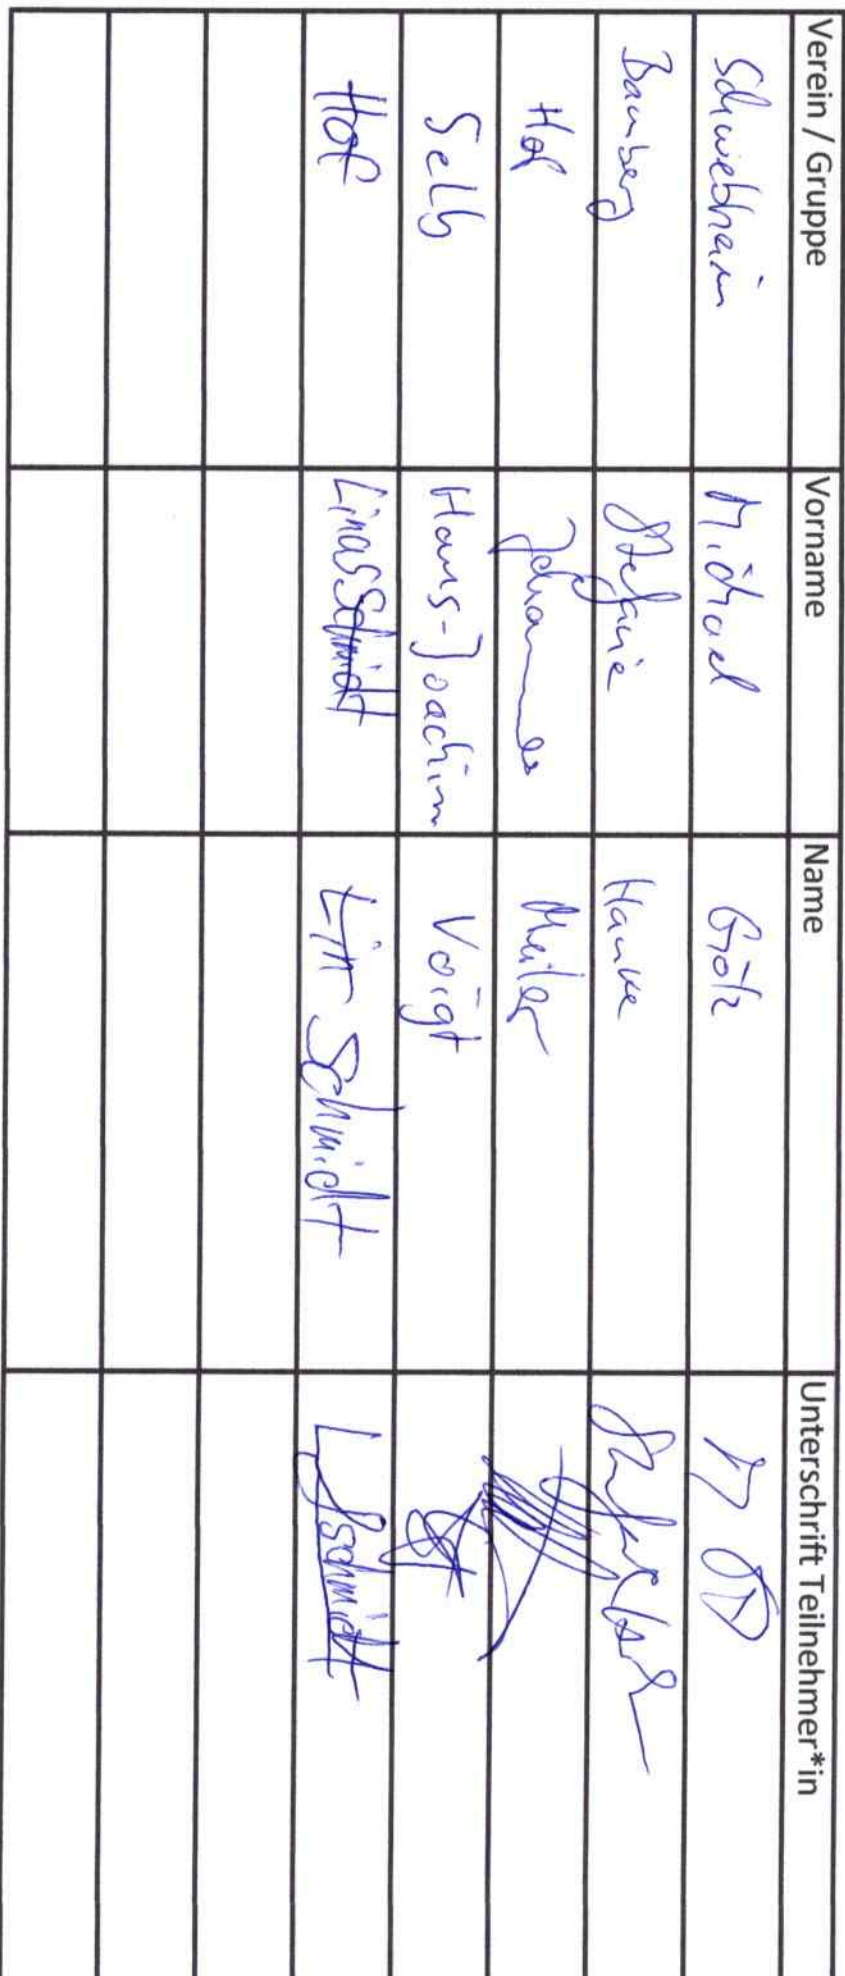 Verein / Gruppe Vorname Name Unterschrift Teilnehmer*in
Schwebheim Michael Götz
Bamberg Stefanie Hanke
Hof Johannes Meiler
Selb Hans-Joachim Voigt
Hof Linas Schmidt Lin Schmidt L Schmidt